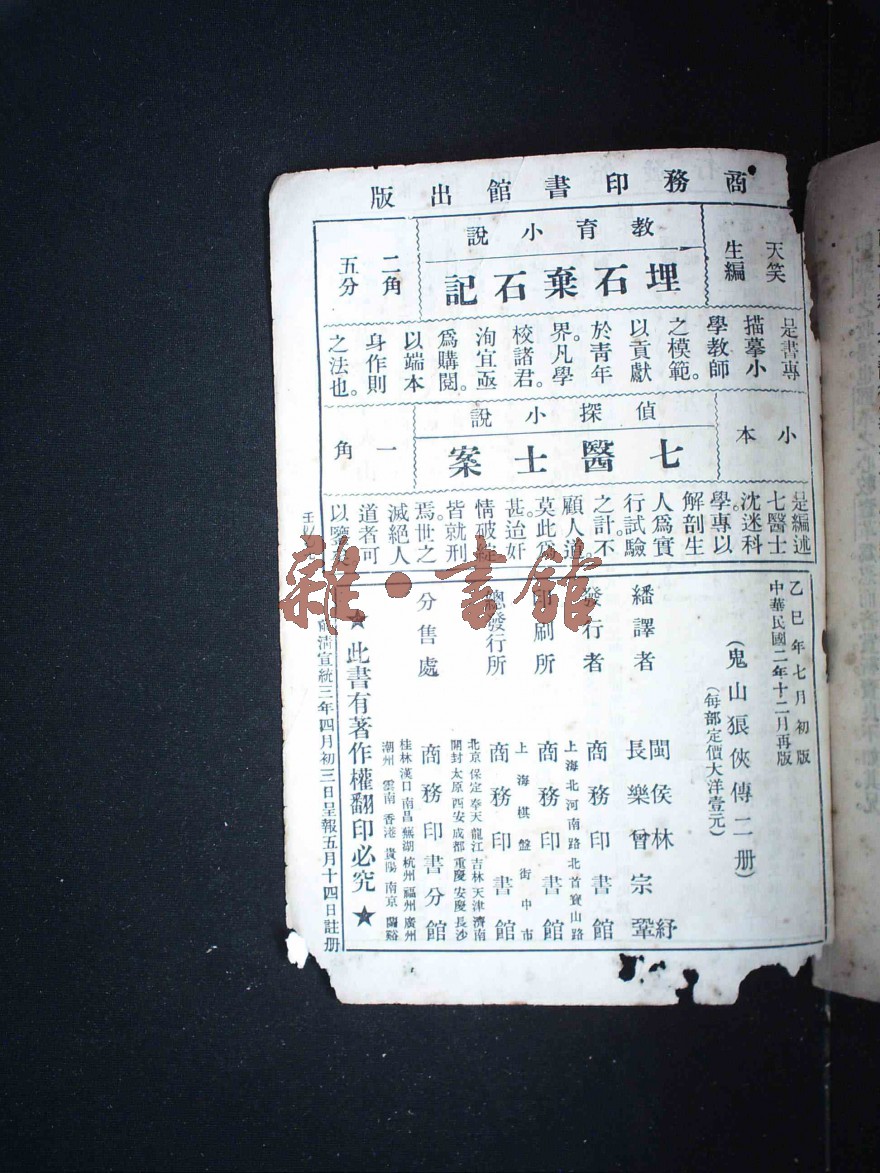 商務印書館出版
天笑
生編
教育小說
埋石棄石記
二角
五分
是書專
描摹小
學教師
之模範。
以貢獻
於靑年
界。凡學
校諸君。
洵宜亟
爲購閱。
以端本
身作則
之法也。
小
本
偵探小說
七醫士案
一
角
是編述
七醫士
沈迷科
學。專以
解剖生
人爲實
行試驗
之計。不
顧人道。
莫此爲
甚。迨奸
情破綻
皆就刑
焉。世之
滅絕人
道者可
以鑒矣
乙巳年七月初版
中華民國二年十二月再版
(鬼山狼俠傳二册)
(每部定價大洋壹元)
繙譯者
閩侯林紓
長樂曾宗鞏
發行者
商務印書館
上海北河南路北首寶山路
印刷所
商務印書館
上海棋盤街中市
總發行所
商務印書館
北京保定奉天龍江吉林天津濟南
開封太原西安成都重慶安慶長沙
分售處
商務印書分館
桂林漢口南昌蕪湖杭州福州廣州
潮州雲南香港貴陽南京蘭谿
★此書有著作權翻印必究★
前淸宣統三年四月初三日呈報五月十四日註册
雜·書館